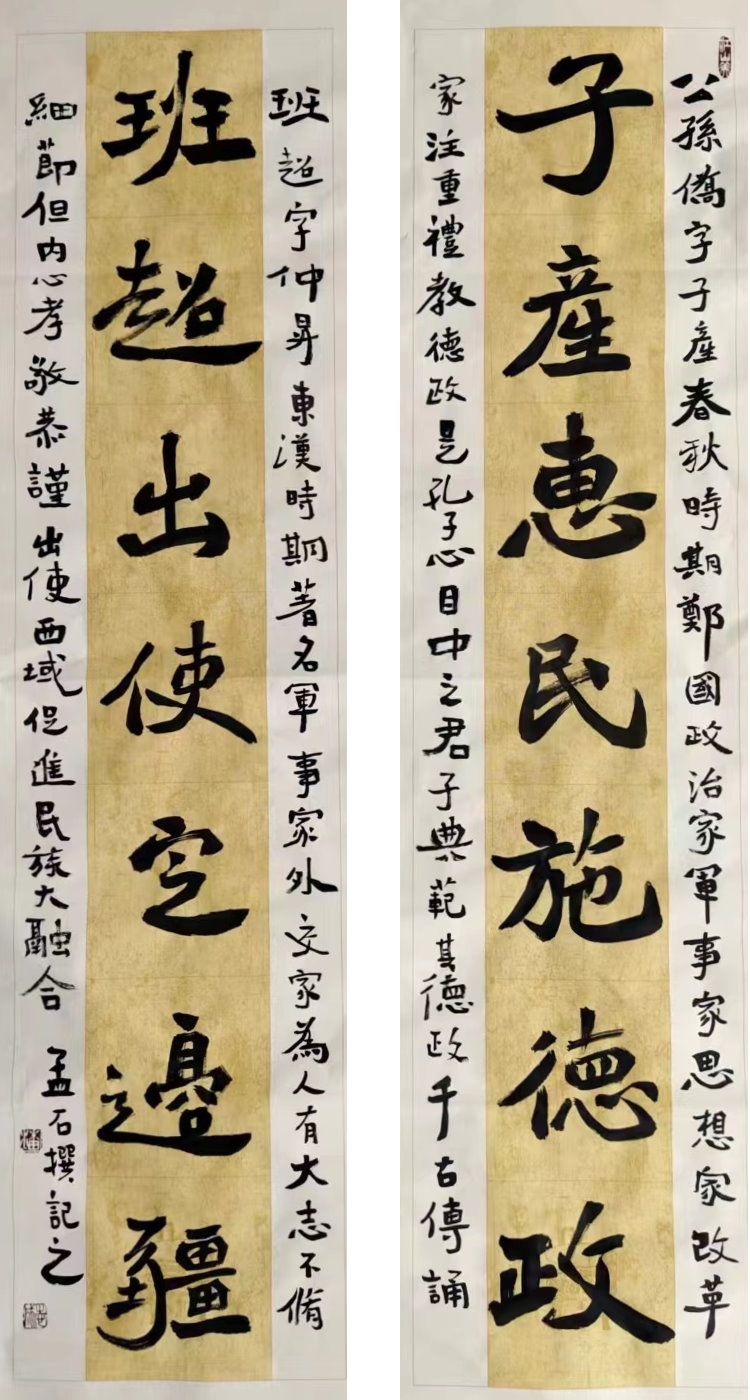 公孫僑字子產春秋時期鄭國政治家軍事家思想家改革
子產惠民施德政
家注重禮教德政是孔子心目中之君子典範其德政千古傳誦
班超字仲昇東漢時期著名軍事家外交家為人有大志不脩
班超出使定邊疆
細節但內心孝敬恭謹出使西域促進民族大融合
孟石撰記之